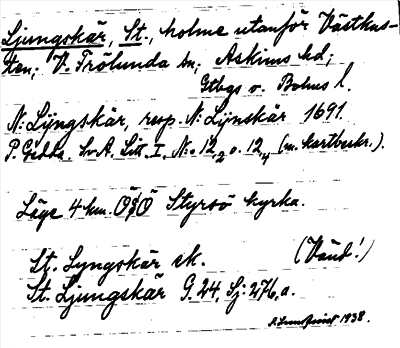 Ljungskär, St., holme utanför Västkus-
ten; V. Frölunda sn; Askims hd;
Gtbgs o. Bohus l.
N: Lÿngskär, resp. N: Lÿnskär 1691.
P. Gedda, Sv. A. Litt. I. N:o 12,2 o. 12,4 (m. kartbeskr.).
Läge 4 km. ÖSÖ Styrsö kyrka.
St. Lyngskär ek. (Vänd!)
St. Ljungskär G. 24, Sj: 276, a.
1938.